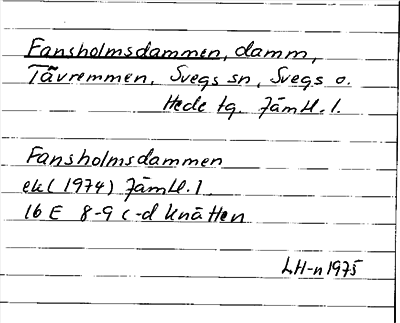 Fansholmsdammen, damm,
Tävremmen, Svegs sn, Svegs o.
Hede tg. Jämtl. l.
Fansholmsdammen
ek (1974) Jämtl. l
16 E 8-9 c-d Knätten
LH-n 1975